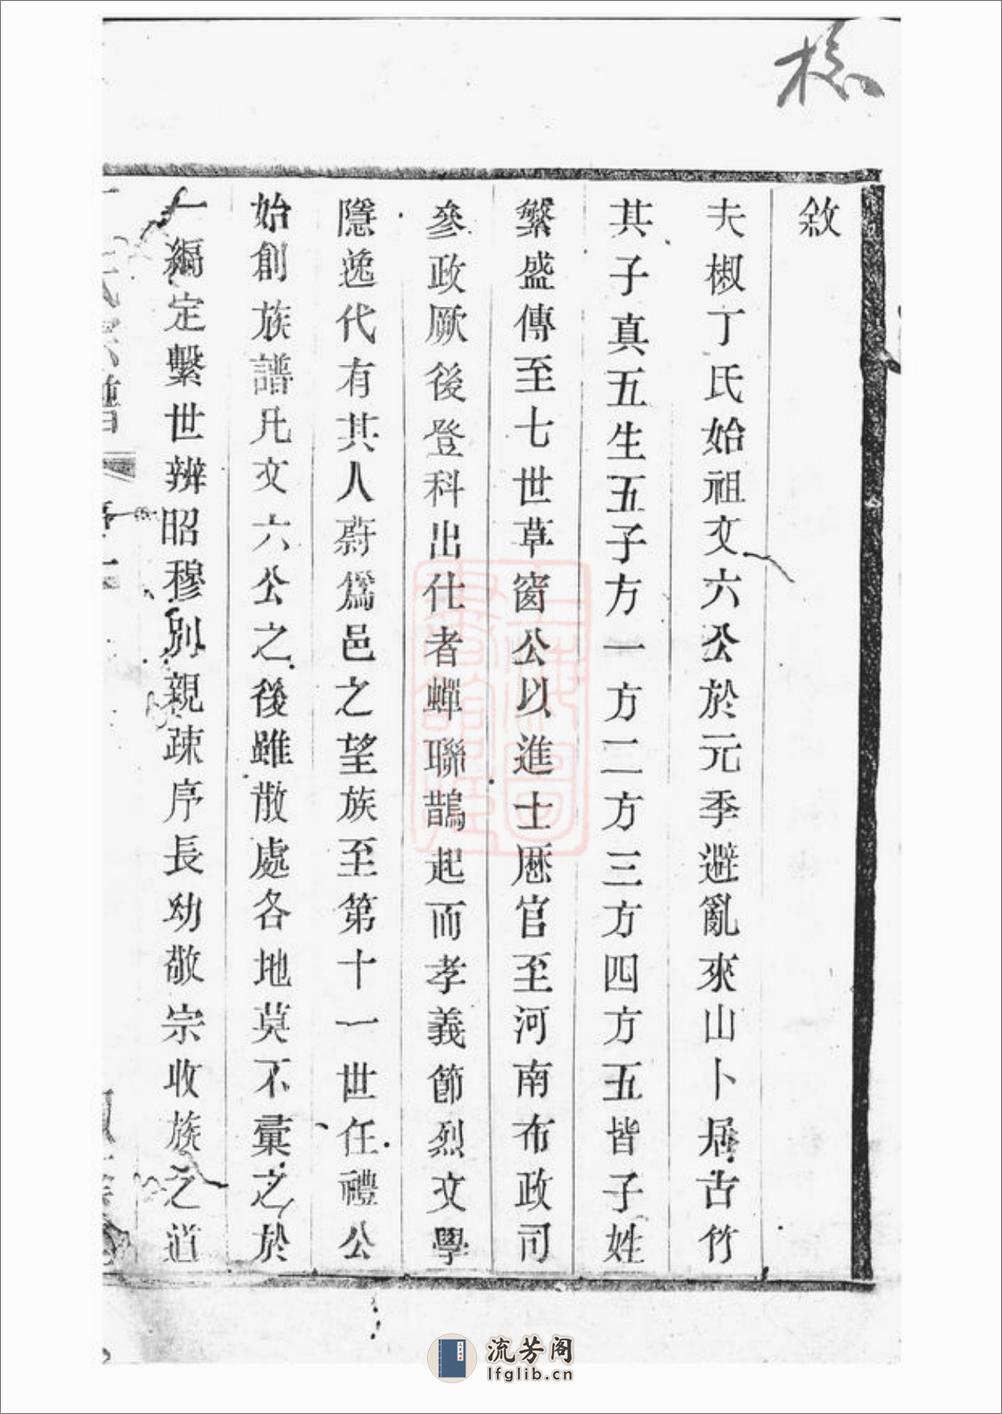 敘
夫椒丁氏始祖文六公於元季避亂來山卜居古竹
其子真五生五子方一方二方三方四方五皆子姓
繁盛傳至七世草窗公以進士歷官至河南布政司
參政厥後登科出仕者蟬聯鵲起而孝義節烈文學
隱逸代有其人蔚爲邑之望族至第十一世任禮公
始創族譜凡文六公之後雖散處各地莫不彙之於
一編定繫世辨昭穆別親疎序長幼敬宗收族之道
上海圖書館藏
流芳阁
lfglib.cn